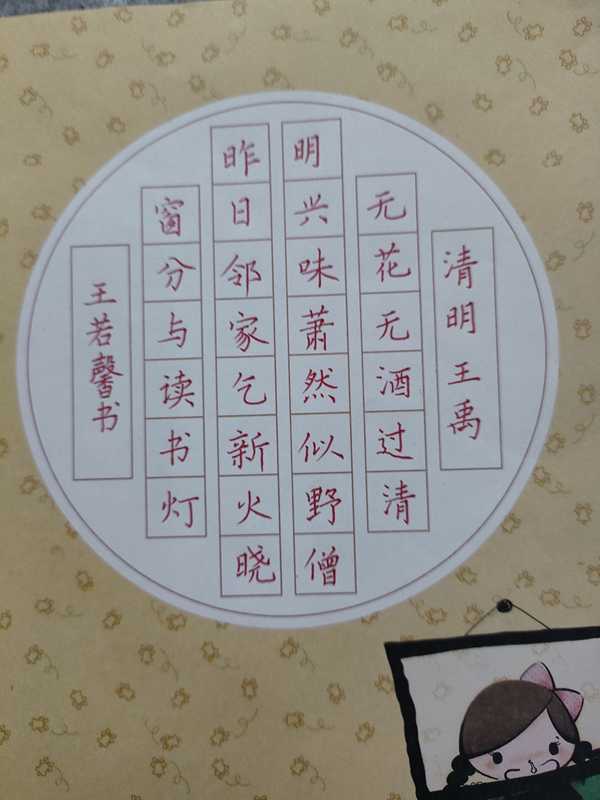 清明 王禹
无花无酒过清
明兴味萧然似野僧
昨日邻家乞新火晓
窗分与读书灯
王若馨书